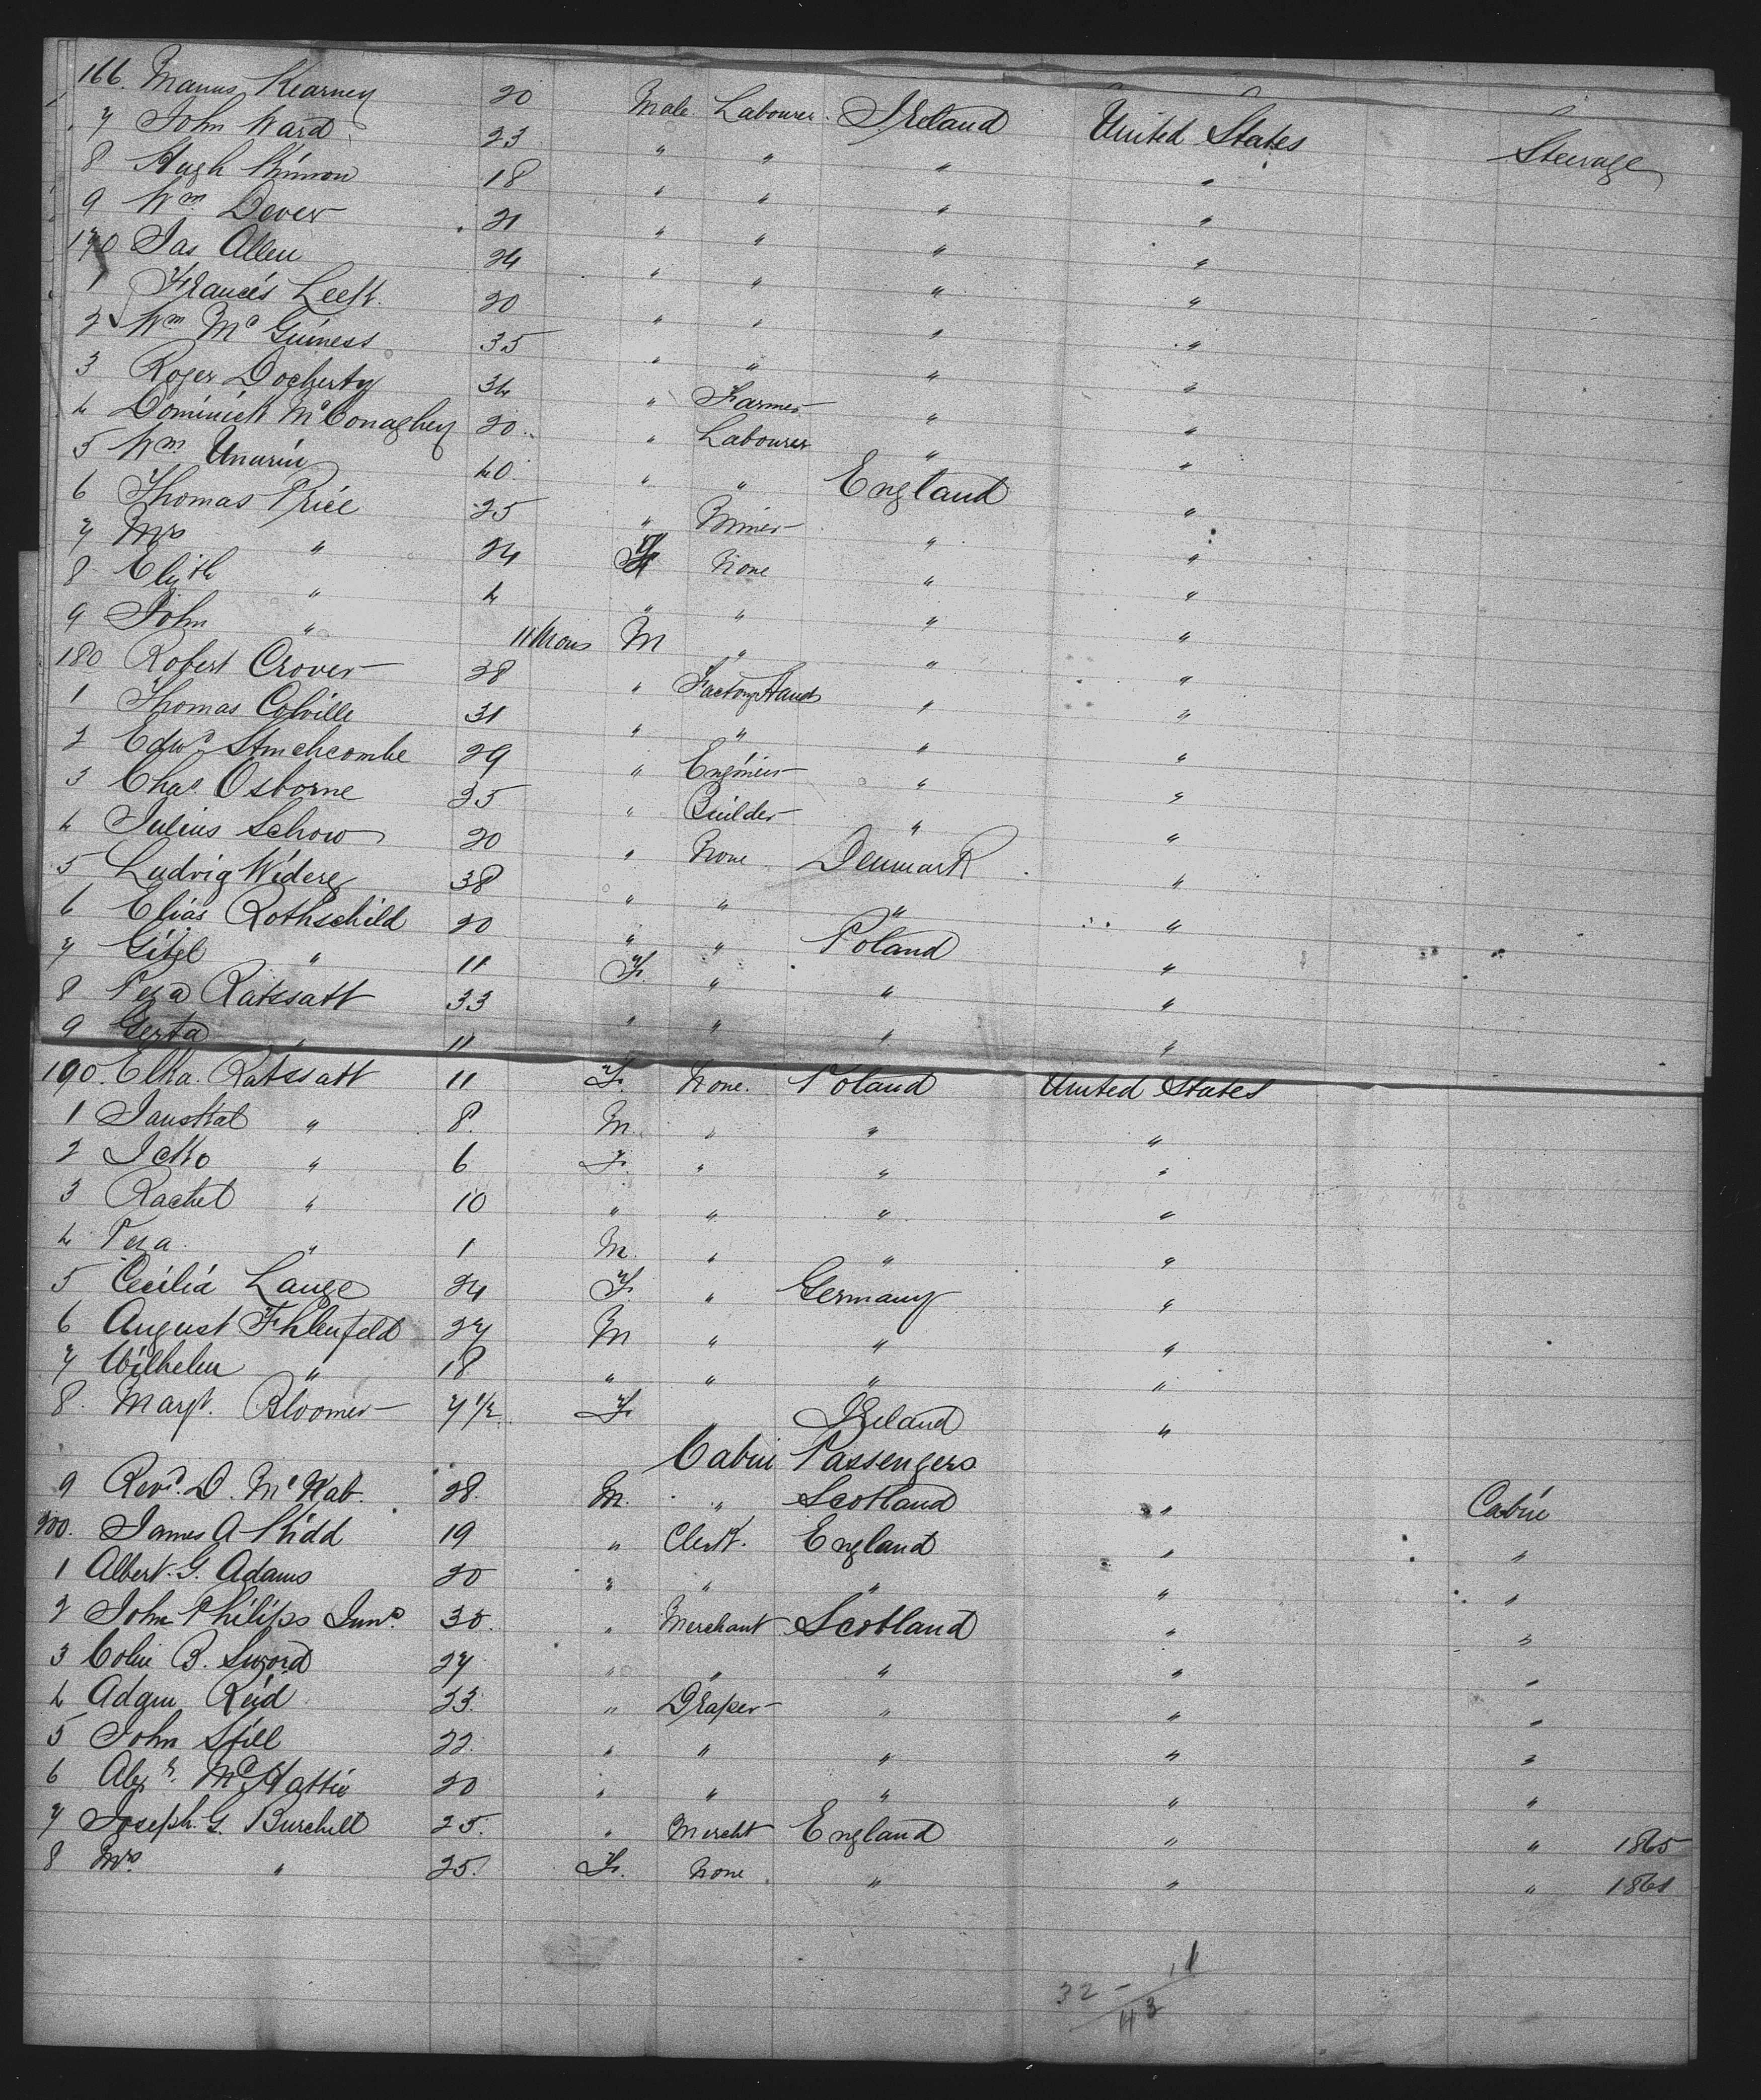 166. Manus Kearney 20 Male Labourer. Ireland United States Steerage
7 John Ward 23 " " " "
8 Hugh Kinnon 18 " " " "
9 Wm. Dever 21 " " " "
170 Jas Allen 24 " " " "
1 Francis Leek. 20 " " " "
2 Wm Mc Guiness 35 " " " "
3 Roger Docherty 34 " Farmer " "
4 Dominick McConaghey 20 " Labourer " "
5 Wm. 40 " " England "
6 Thomas Price 25 " Miner " "
7 Mrs " 24 F None " "
8 Elizth " 4 " " " "
9 John " 11 Mons M " " "
180 Robert Crover 28 " Factory Hand " "
1 Thomas Colville 31 " " " "
2 Edwd. Stinchcombe 29 " Engineer " "
3 Chas. Osborne 35 " Builder " "
4 Julius Schow 20 " None Denmark "
5 Ludvig Widerg 38 " " " "
6 Elias Rothschild 20 " " Poland "
7 Gitel " 11 F. " " "
8 Peza Ratssatt 33 " " " "
9 Gerta " 11 " " "
190. Elka. Ratssatt 11 F. None. Poland United States
1 Jauskal " 8. M. " " "
2 Icko " 6 F. " " "
3 Rachel " 10 " " " "
4 Peza " 1 M. " " "
5 Cecilia Lange 24 F. " Germany "
6 August Fhlenfeld 27 M " " "
7 Wilhelm " 18 " " " "
8. Margt. Bloomer 7 1/2 F " Ireland "
Cabin Passengers
9 Revd. D. McNab. 28. M. " Scotland " Cabin
200. James A Kidd 19 " Clerk. England " "
1 Albert. G. Adams 20 " " " " "
2 John Philips Junr. 30. " Merchant Scotland " "
3 Colin B. Sword 27 " " " " "
4 Adam Reid 23. " Draper " " "
5 John Still 22. " " " " "
6 Alexr. McHattie 20 " " " " "
7 Joseph. G. Burchell 25. " Mercht England " " 1865
8 Mrs. " 25. F. None " " " 1861
11
32 -
43